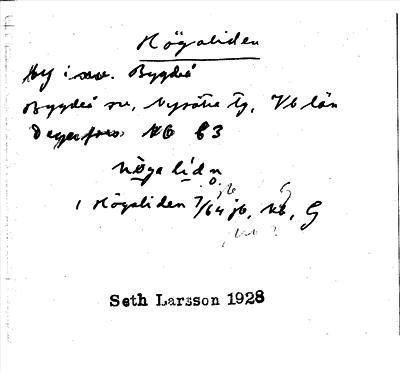 Högaliden
By i sv. Bygdeå
Bygdeå sn, Nysätra tg, Vb län
Degerfors
högalidn
1 Högaliden 7/64 jb, kb, G
jb G
Seth Larsson 1928